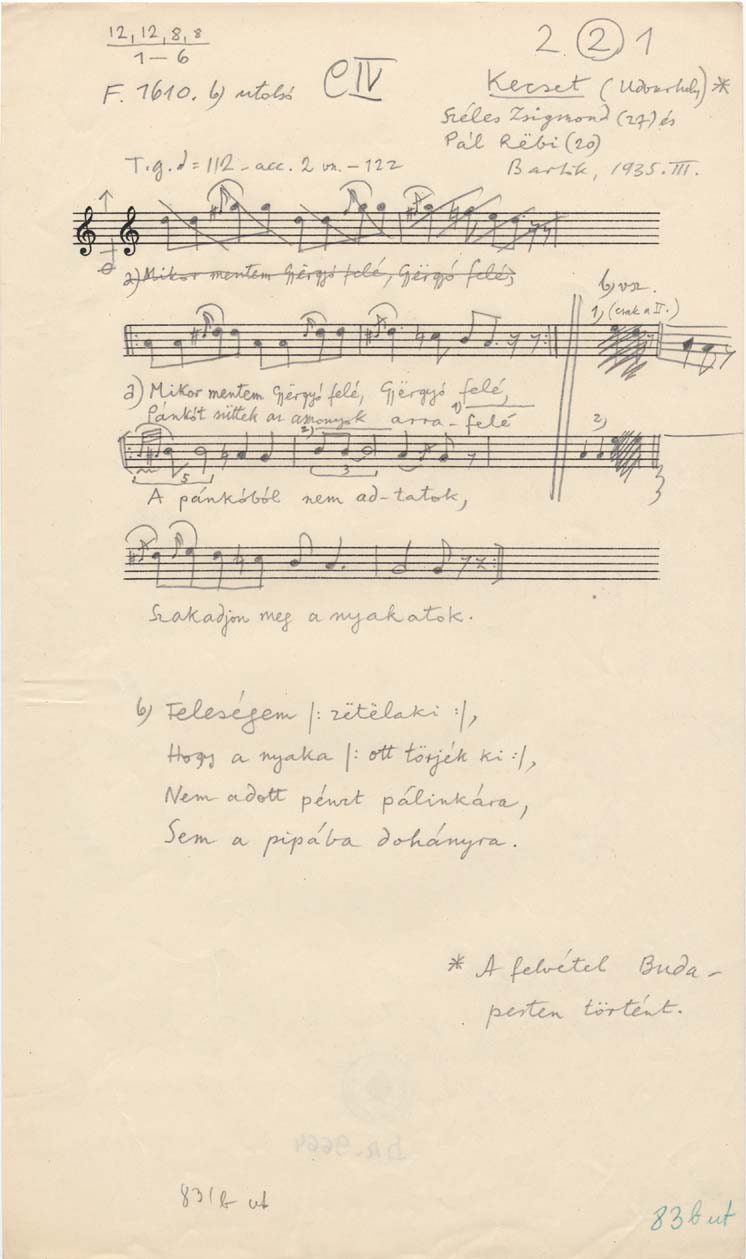 12, 12, 8, 8
1–6
2 2 1
F. 1610. b) utolsó
C IV
Kecset (Udvarhely) *
Széles Zsigmond (27) és
Pál Rëbi (20)
Bartók, 1935. III.
T. g. d = 112 - acc. 2 vn. - 122
a) Mikor mentem Gyërgyó felé, Gyërgyó felé,
b) vsz.
1) (csak a II.)
a) Mikor mentem Gyërgyó felé, Gyërgyó felé,
Pánkót süttek az asszonyok arra-felé
1)
2)
2)
5
3
A pánkóból nem ad-tatok,
Szakadjon meg a nyakatok.
b) Feleségem |: zëtëlaki :|,
Hogy a nyaka |: ott törjék ki :|,
Nem adott pénzt pálinkára,
Sem a pipába dohányra.
* A felvétel Buda-
pesten történt.
83/b ut
83 b ut